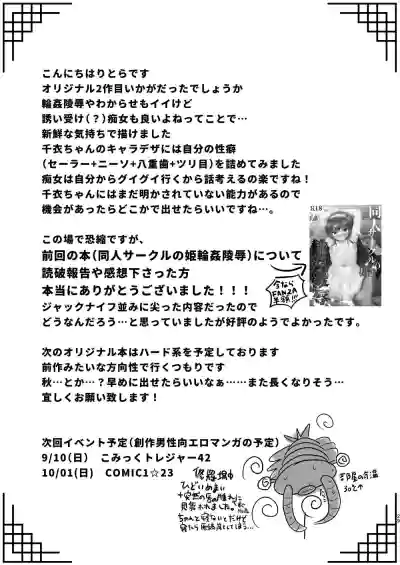 こんにちはりとらです
オリジナル2作目いかがだったでしょうか
輪姦陵辱やわからせもイイけど
誘い受け(?)痴女も良いよねってことで…
新鮮な気持ちで描けました
千衣ちゃんのキャラデザには自分の性癖
(セーラー+ニーソ+八重歯+ツリ目)を詰めてみました
痴女は自分からグイグイ行くから話考えるの楽ですね!
千衣ちゃんにはまだ明かされていない能力があるので
機会があったらどこかで出せたらいいですね…。
この場で恐縮ですが、
前回の本(同人サークルの姫輪姦陵辱)について
読破報告や感想下さった方
本当にありがとうございました!!!
ジャックナイフ並みに尖った内容だったので
どうなんだろう…と思っていましたが好評のようでよかったです。
今なら
FANZA
半額!!!
次のオリジナル本はハード系を予定しております
前作みたいな方向性で行くつもりです
秋…とか…?早めに出せたらいいなぁ……また長くなりそう…
宜しくお願い致します!
次回イベント予定(創作男性向エロマンガの予定)
9/10(日) こみっくトレジャー42
10/01(日) COMIC1☆23
ひどいめまい
30℃↑
29